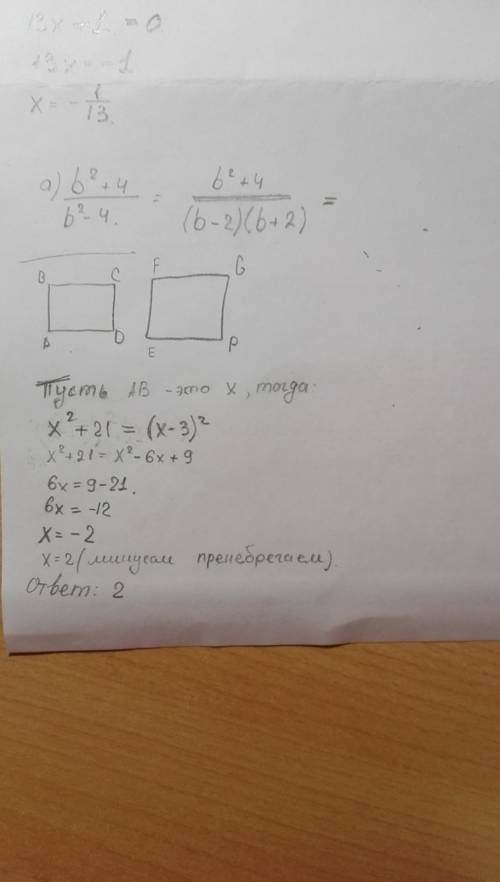 13x - 1 = 0
13x = -1
x = - 1/13.
а) b²+4 / b²-4. = b²+4 / (b-2)(b+2) =
B C F G
A D E P
Пусть AB - это x, тогда:
x²+21 = (x-3)²
x²+21 = x²-6x+9
6x = 9-21.
6x = -12
x = -2
x=2 (минусом пренебрегаем).
Ответ: 2